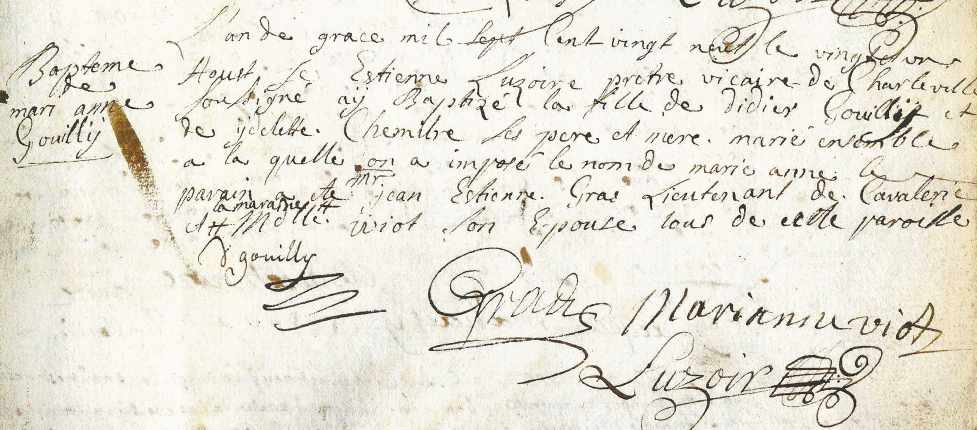 Bapteme
de
mari anne
Gouilly
L'an de grace mil sept cent vingt neuf le vingt un
Aoust je Estienne Luzoire pretre vicaire de Charleville
soussigné ay Baptizé la fille de didier Gouilly et
de Chemitre ses pere et mere. marié ensemble
a la quelle on a imposé le nom de marie anne le
parain a ete mr jean Estienne. Gras Lieutenant de Cavalerie
et la maraine Melle. Wiot son Epouse tous de cette paroisse
D gouilly
Gradis
Marianne viot
Luzoir